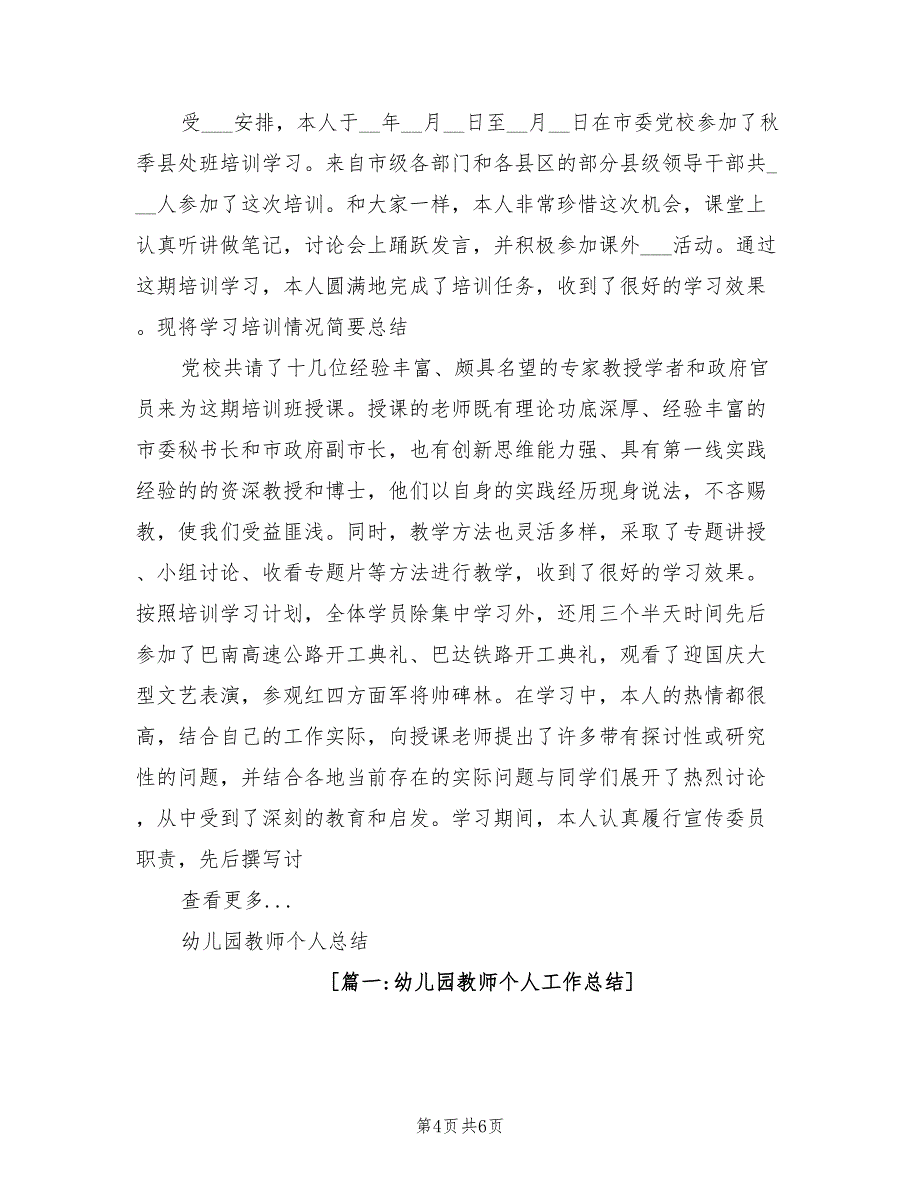 受___安排，本人于__年__月__日至__月__日在市委党校参加了秋
季县处班培训学习。来自市级各部门和各县区的部分县级领导干部共_
__人参加了这次培训。和大家一样，本人非常珍惜这次机会，课堂上
认真听讲做笔记，讨论会上踊跃发言，并积极参加课外___活动。通过
这期培训学习，本人圆满地完成了培训任务，收到了很好的学习效果
。现将学习培训情况简要总结
党校共请了十几位经验丰富、颇具名望的专家教授学者和政府官
员来为这期培训班授课。授课的老师既有理论功底深厚、经验丰富的
市委秘书长和市政府副市长，也有创新思维能力强、具有第一线实践
经验的的资深教授和博士，他们以自身的实践经历现身说法，不吝赐
教，使我们受益匪浅。同时，教学方法也灵活多样，采取了专题讲授
、小组讨论、收看专题片等方法进行教学，收到了很好的学习效果。
按照培训学习计划，全体学员除集中学习外，还用三个半天时间先后
参加了巴南高速公路开工典礼、巴达铁路开工典礼，观看了迎国庆大
型文艺表演，参观红四方面军将帅碑林。在学习中，本人的热情都很
高，结合自己的工作实际，向授课老师提出了许多带有探讨性或研究
性的问题，并结合各地当前存在的实际问题与同学们展开了热烈讨论
，从中受到了深刻的教育和启发。学习期间，本人认真履行宣传委员
职责，先后撰写讨
查看更多...
幼儿园教师个人总结
[篇一:幼儿园教师个人工作总结]
第4页共6页